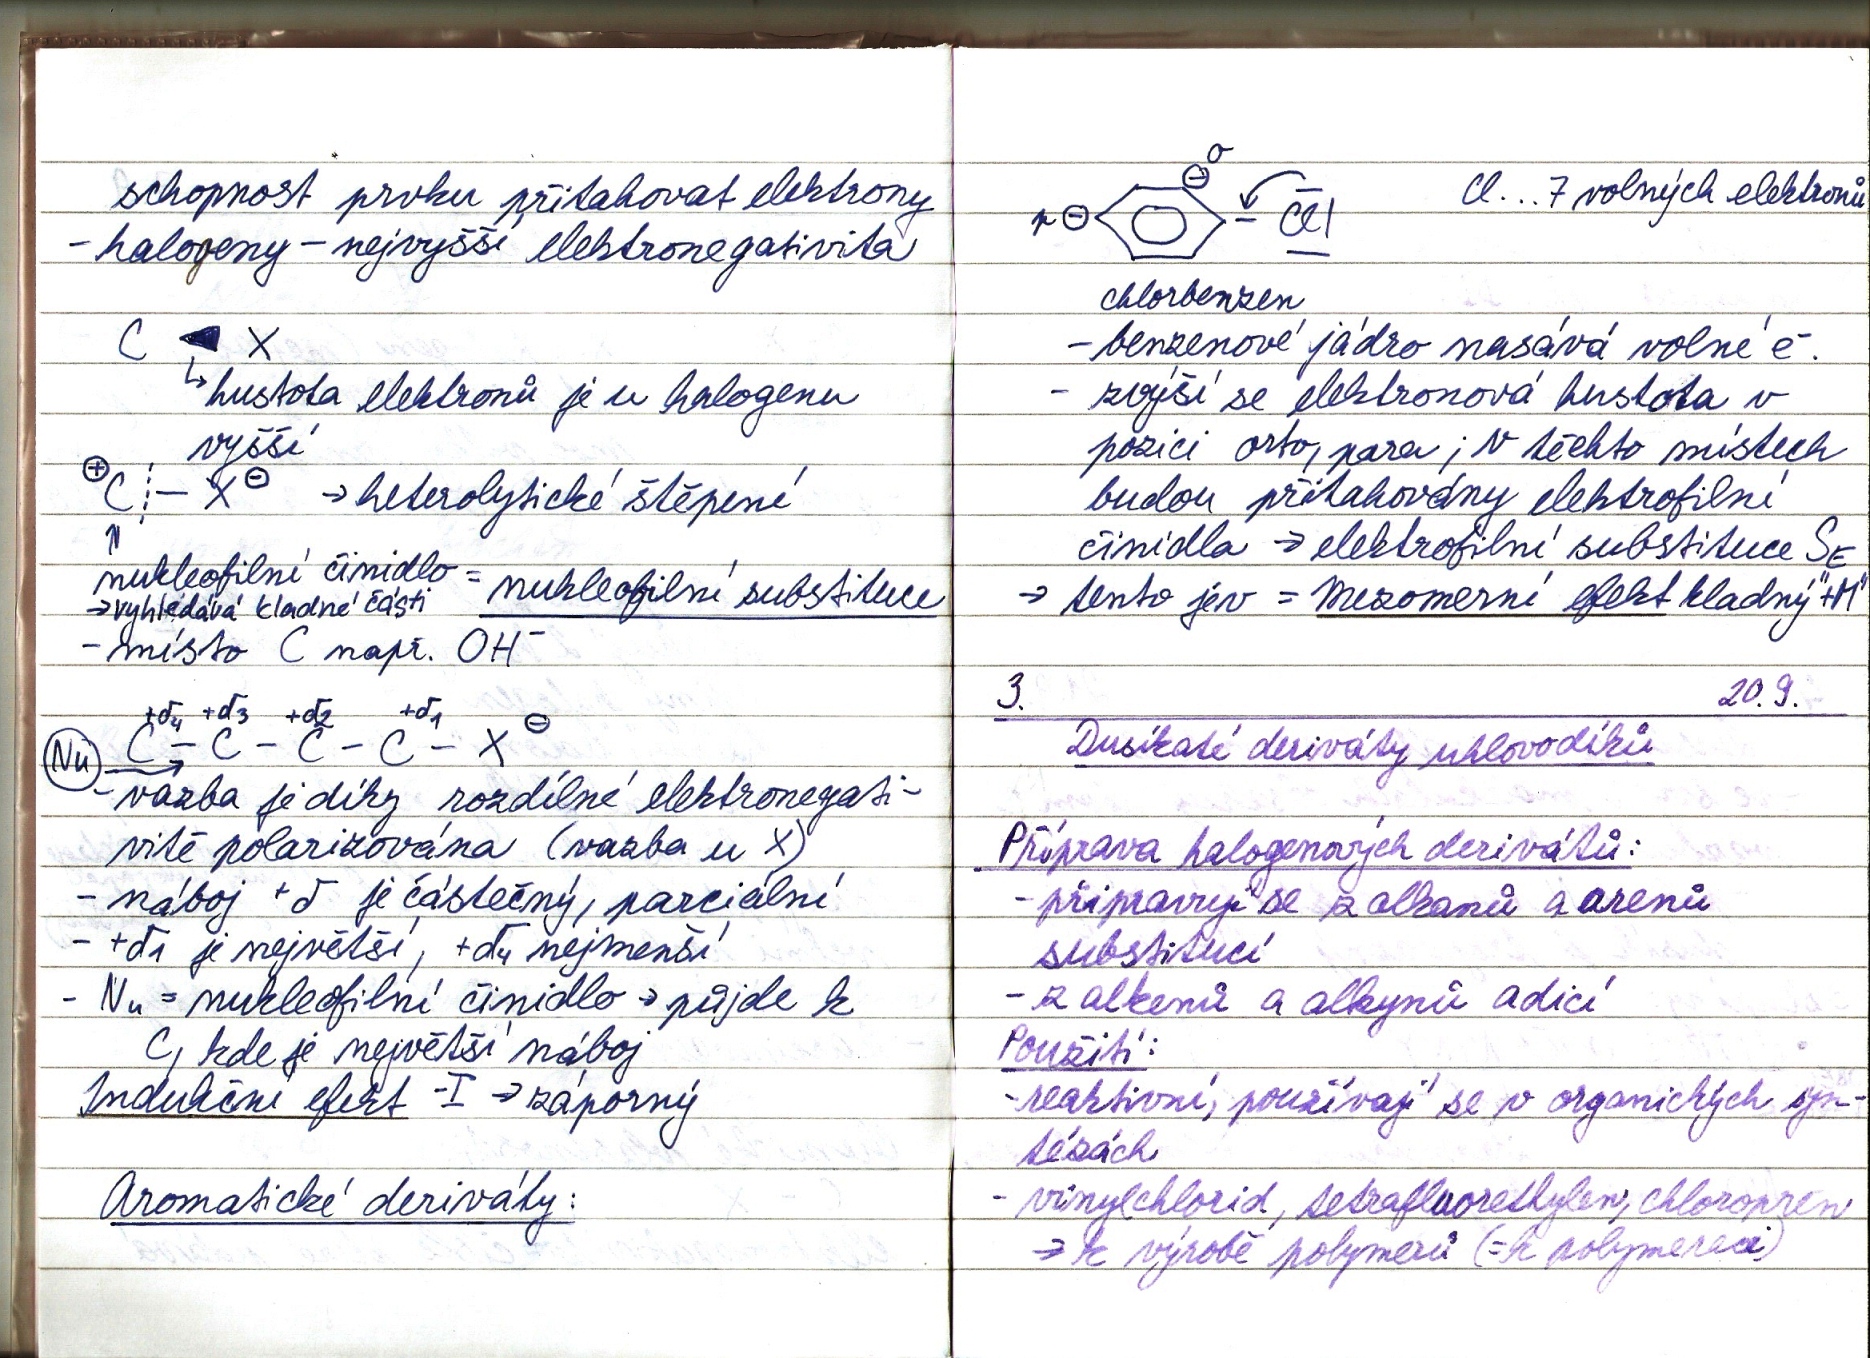 schopnost prvku přitahovat elektrony
- halogeny - nejvyšší elektronegativita
C ◄ X
↳ hustota elektronů je u halogenu
vyšší
⊕C ¦— X⊖ → heterolytické štěpení
↑
nukleofilní činidlo = nukleofilní substituce
→ vyhledává kladné části
- místo C např. OH⁻
+δ4 +δ3 +δ2 +δ1
Nu → C - C - C - C - X ⊖
- vazba je díky rozdílné elektronegati-
vitě polarizována (vazba u X)
- náboj +δ je částečný, parciální
- +δ1 je největší, +δ4 nejmenší
- Nu = nukleofilní činidlo → půjde k
C, kde je největší náboj
Indukční efekt -I → záporný
Aromatické deriváty:
o
p ⊖ ⊖ - Cl Cl...7 volných elektronů
chlorbenzen
- benzenové jádro nasává volné e⁻.
- zvýší se elektronová hustota v
pozici orto, para; v těchto místech
budou přitahovány elektrofilní
činidla → elektrofilní substituce SE
→ tento jev = Mezomerní efekt kladný "+M"
3. 20.9.
Dusíkaté deriváty uhlovodíků
Příprava halogenových derivátů:
- připravují se z alkanů a arenů
substitucí
- z alkenů a alkynů adicí
Použití:
- reaktivní, používají se v organických syn-
tézách
- vinylchlorid, tetrafluorethylen, chloropren
→ k výrobě polymerů (= k polymeraci)